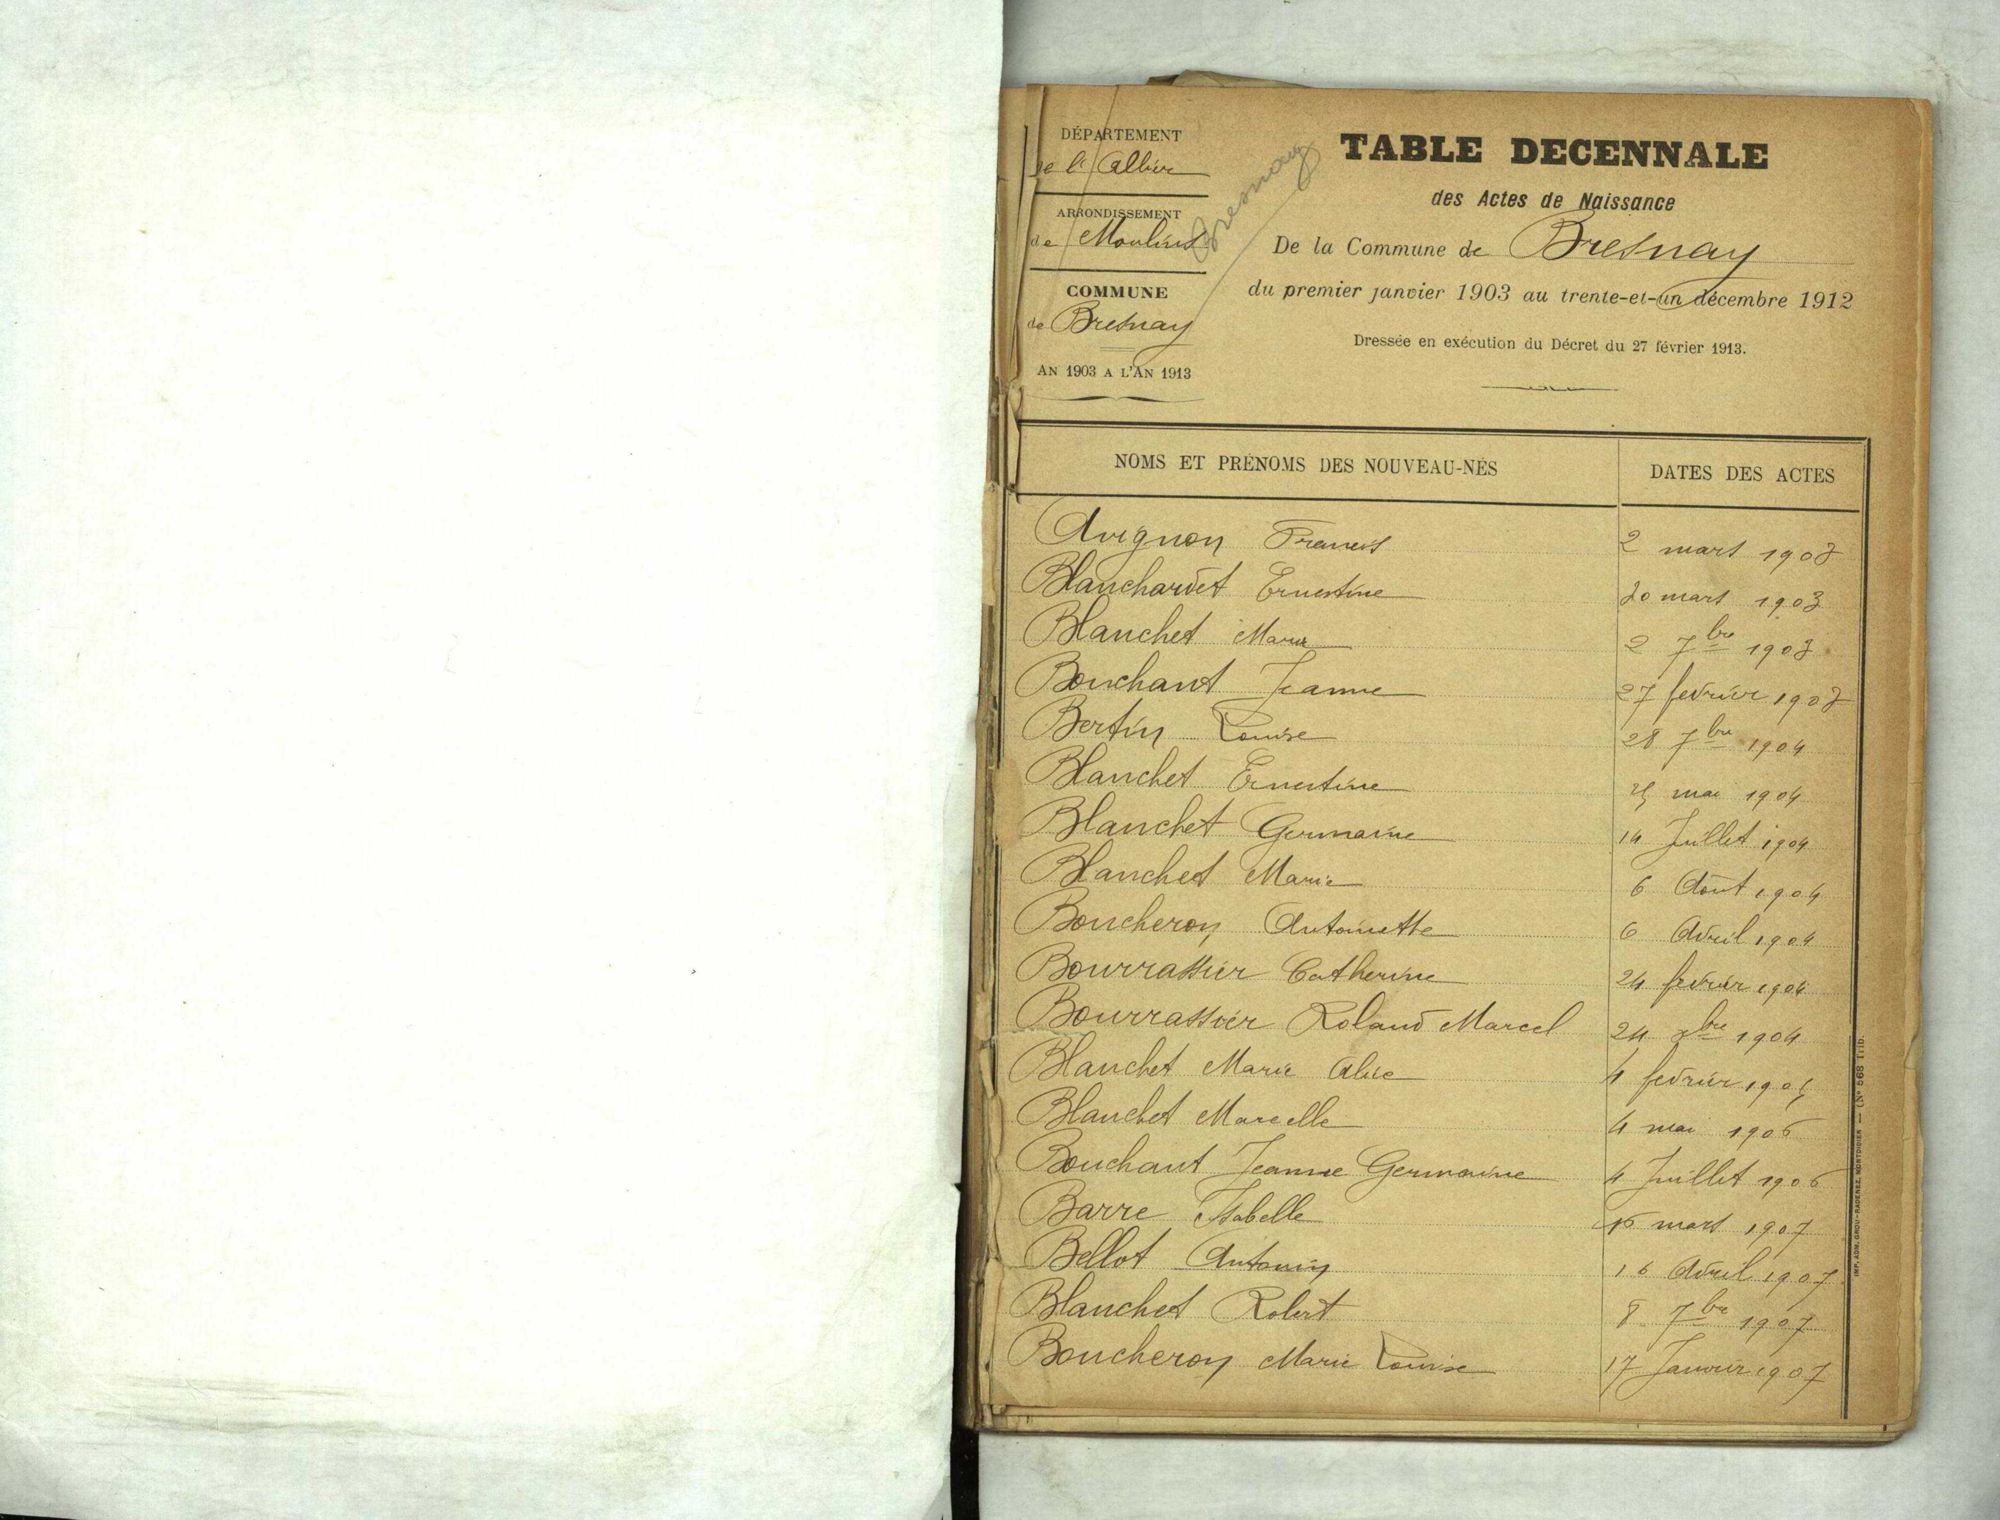 DÉPARTEMENT
de l'Allier
ARRONDISSEMENT
de Moulins
COMMUNE
de Bresnay
AN 1903 A L'AN 1913
Bresnay
TABLE DECENNALE
des Actes de Naissance
De la Commune de Bresnay
du premier janvier 1903 au trente-et-un décembre 1912
Dressée en exécution du Décret du 27 février 1913.
NOMS ET PRÉNOMS DES NOUVEAU-NÉS DATES DES ACTES
Avignon Francis 2 mars 1903
Blanchardet Ernestine 20 mars 1903
Blanchet Maria 2 7bre 1903
Bouchant Jeanne 27 fevrier 1903
Bertin Louise 28 7bre 1904
Blanchet Ernestine mai 1904
Blanchet Germaine 14 Juillet 1904
Blanchet Marie 6 Août 1904
Boucheron Antoinette 6 Avril 1904
Bourrassier Catherine 24 fevrier 1904
Bourrassier Roland Marcel 24 1904
Blanchet Marie Alice 4 fevrier 1905
Blanchet Marcelle 4 mai 1906
Bouchant Jeanne Germaine 4 Juillet 1906
Barre Isabelle 16 mars 1907
Bellot Antonin 16 Avril 1907
Blanchet Robert 8 7bre 1907
Boucheron Marie Louise 17 Janvier 1907
IMP. ADM. GROU-RADENEZ, MONTDIDIER — (N° 568 Trib.